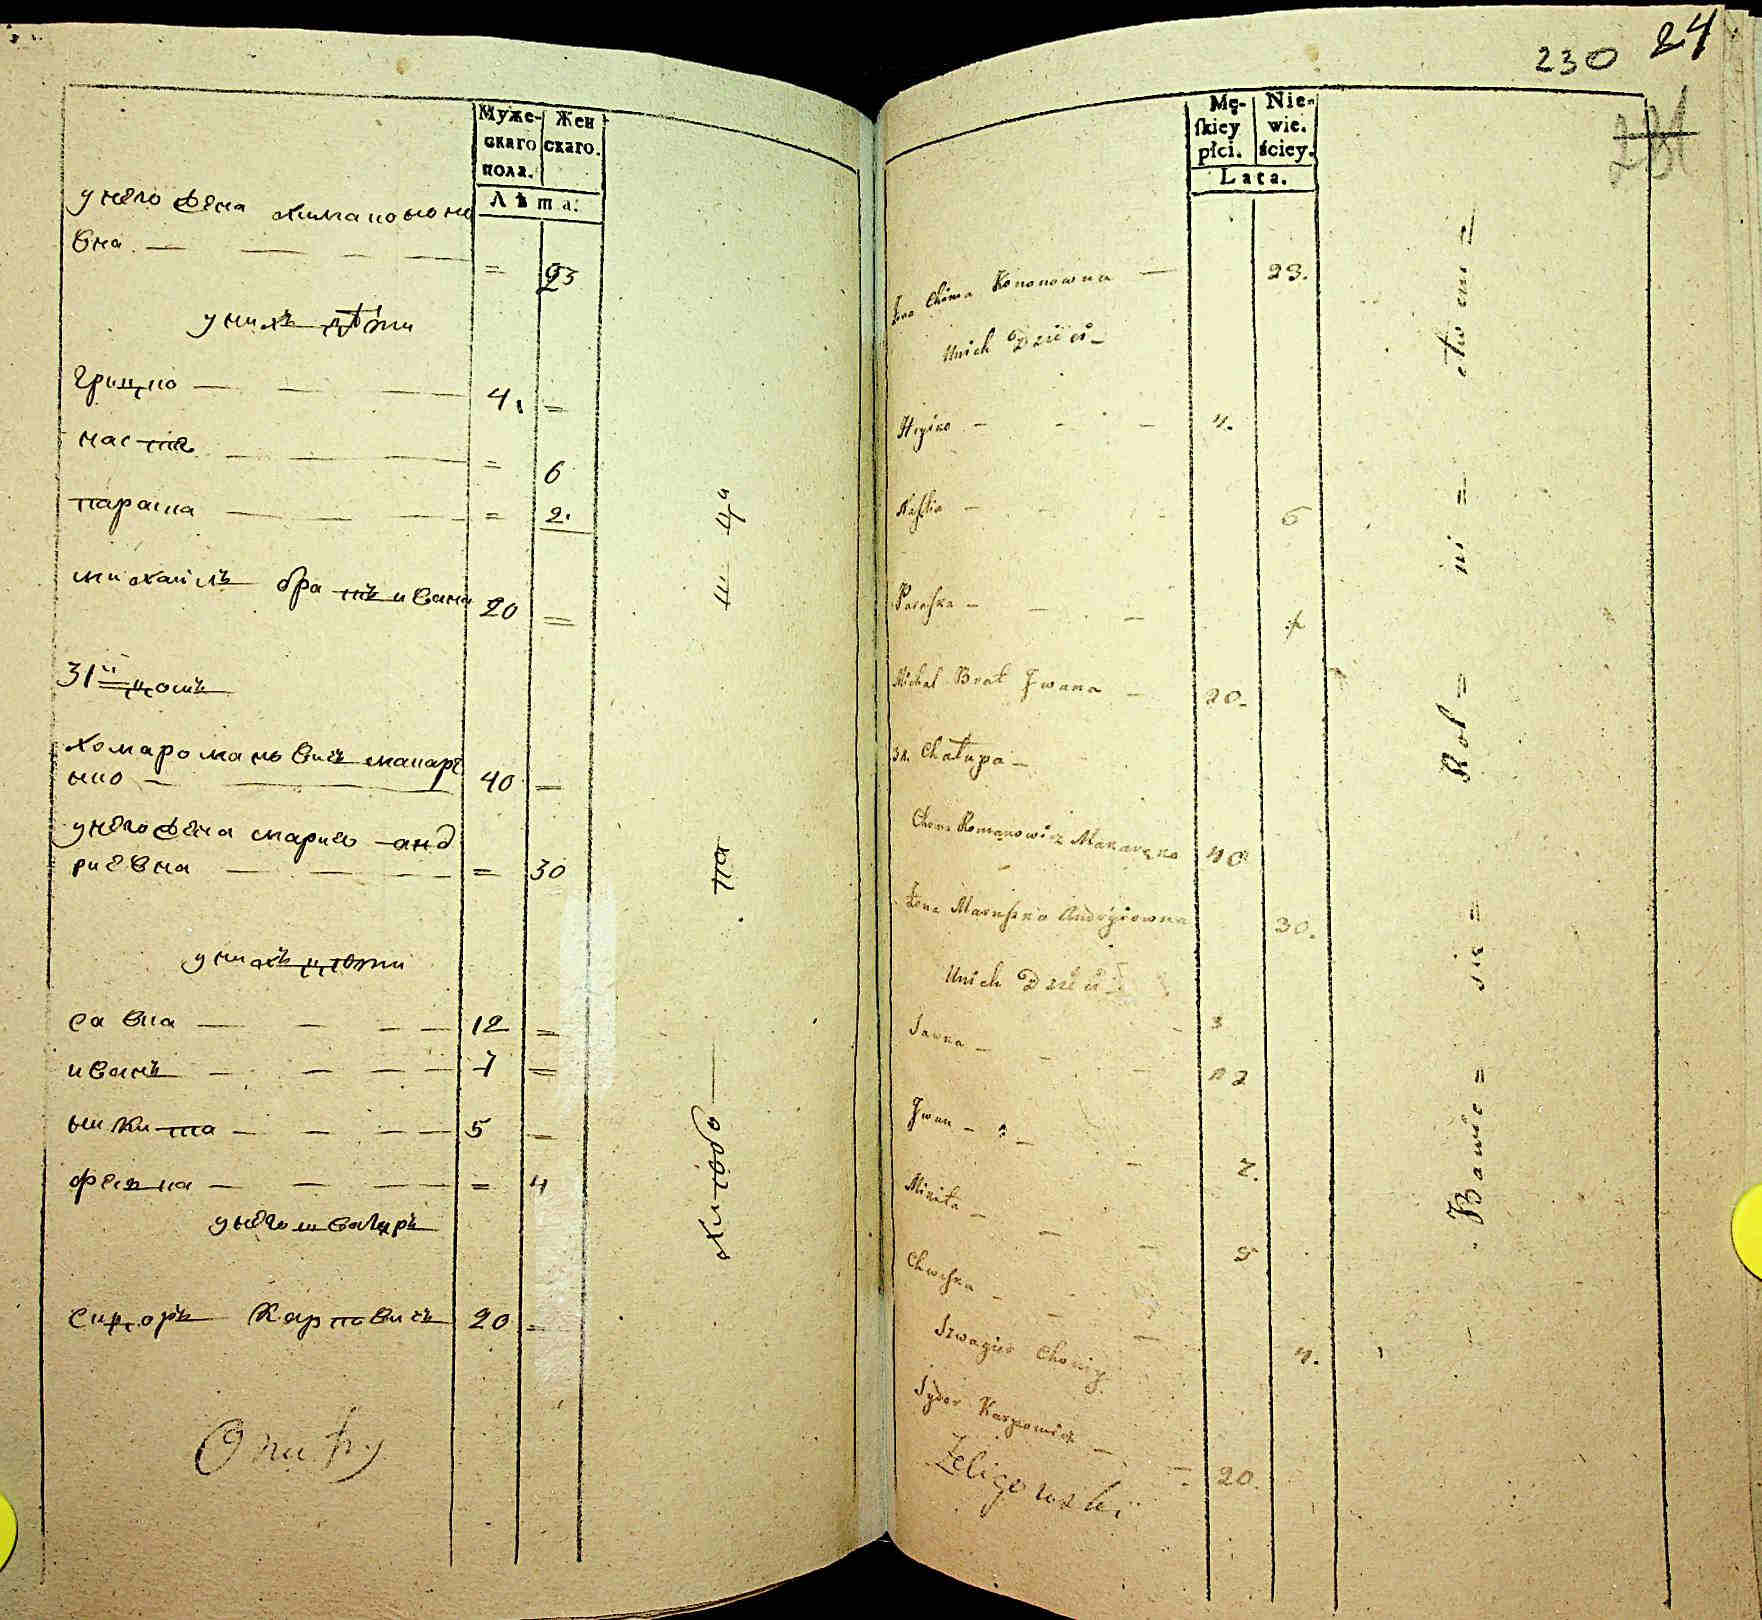 Муже-
скаго
пола.
Жен
скаго.
Лѣта:
у него жена химa кононо
вна — — — — = 23
у нихъ дѣти
грицко — — — 4. =
настя — — — = 6
параска — — — = 2.
михайлъ братъ ивана 20 =
31й домъ
хома романовичъ макарѣ
нко — — 40 =
у него жена марися анд
риевна — — — = 30
у нихъ дѣти
савка — — — — 12 =
иванъ — — — — 7 =
микита — — — — 5 —
феська — — — — = 4
у него швагеръ
сидоръ Карповичъ 20 =
хлѣбо —
па
ш ца
230 24
231
Mę-
skiey
płci.
Nie-
wie.
ściey.
Lata.
Żona Chima Kononowna — 23.
Unich Dzieci —
Hryćko — — — 4.
Nastia — — — 6
Paraska — — —
Michał Brat Jwana — 20.
31. Chałupa —
Choma Romanowicz Makarenko 40
Żona Maruszka Andryiowna 30.
Unich Dzieci
Sawka — — — 12
Jwan — — — 7.
Mikita — — — 5
Chweska — — — 4.
Szwagier Chomy
Sydor Karpowicz — — 20.
Żeligowski
Bawie =
sie =
Rol =
ni =
ctwem =